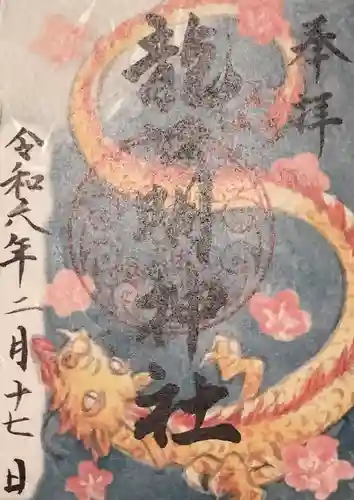 奉拝
龍口明神社
令和六年二月十七日